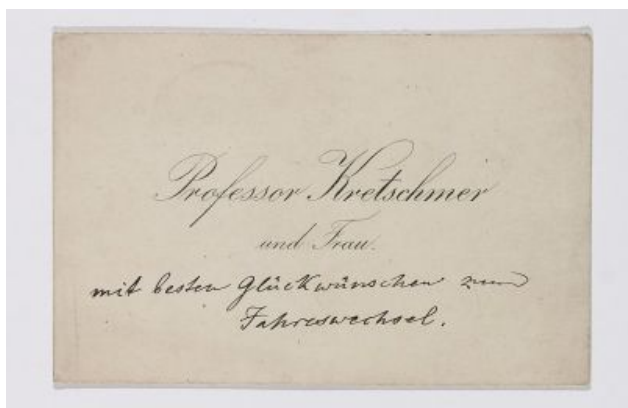 Professor Kretschmer
und Frau.
mit besten Glückwünschen zum
Jahreswechsel.